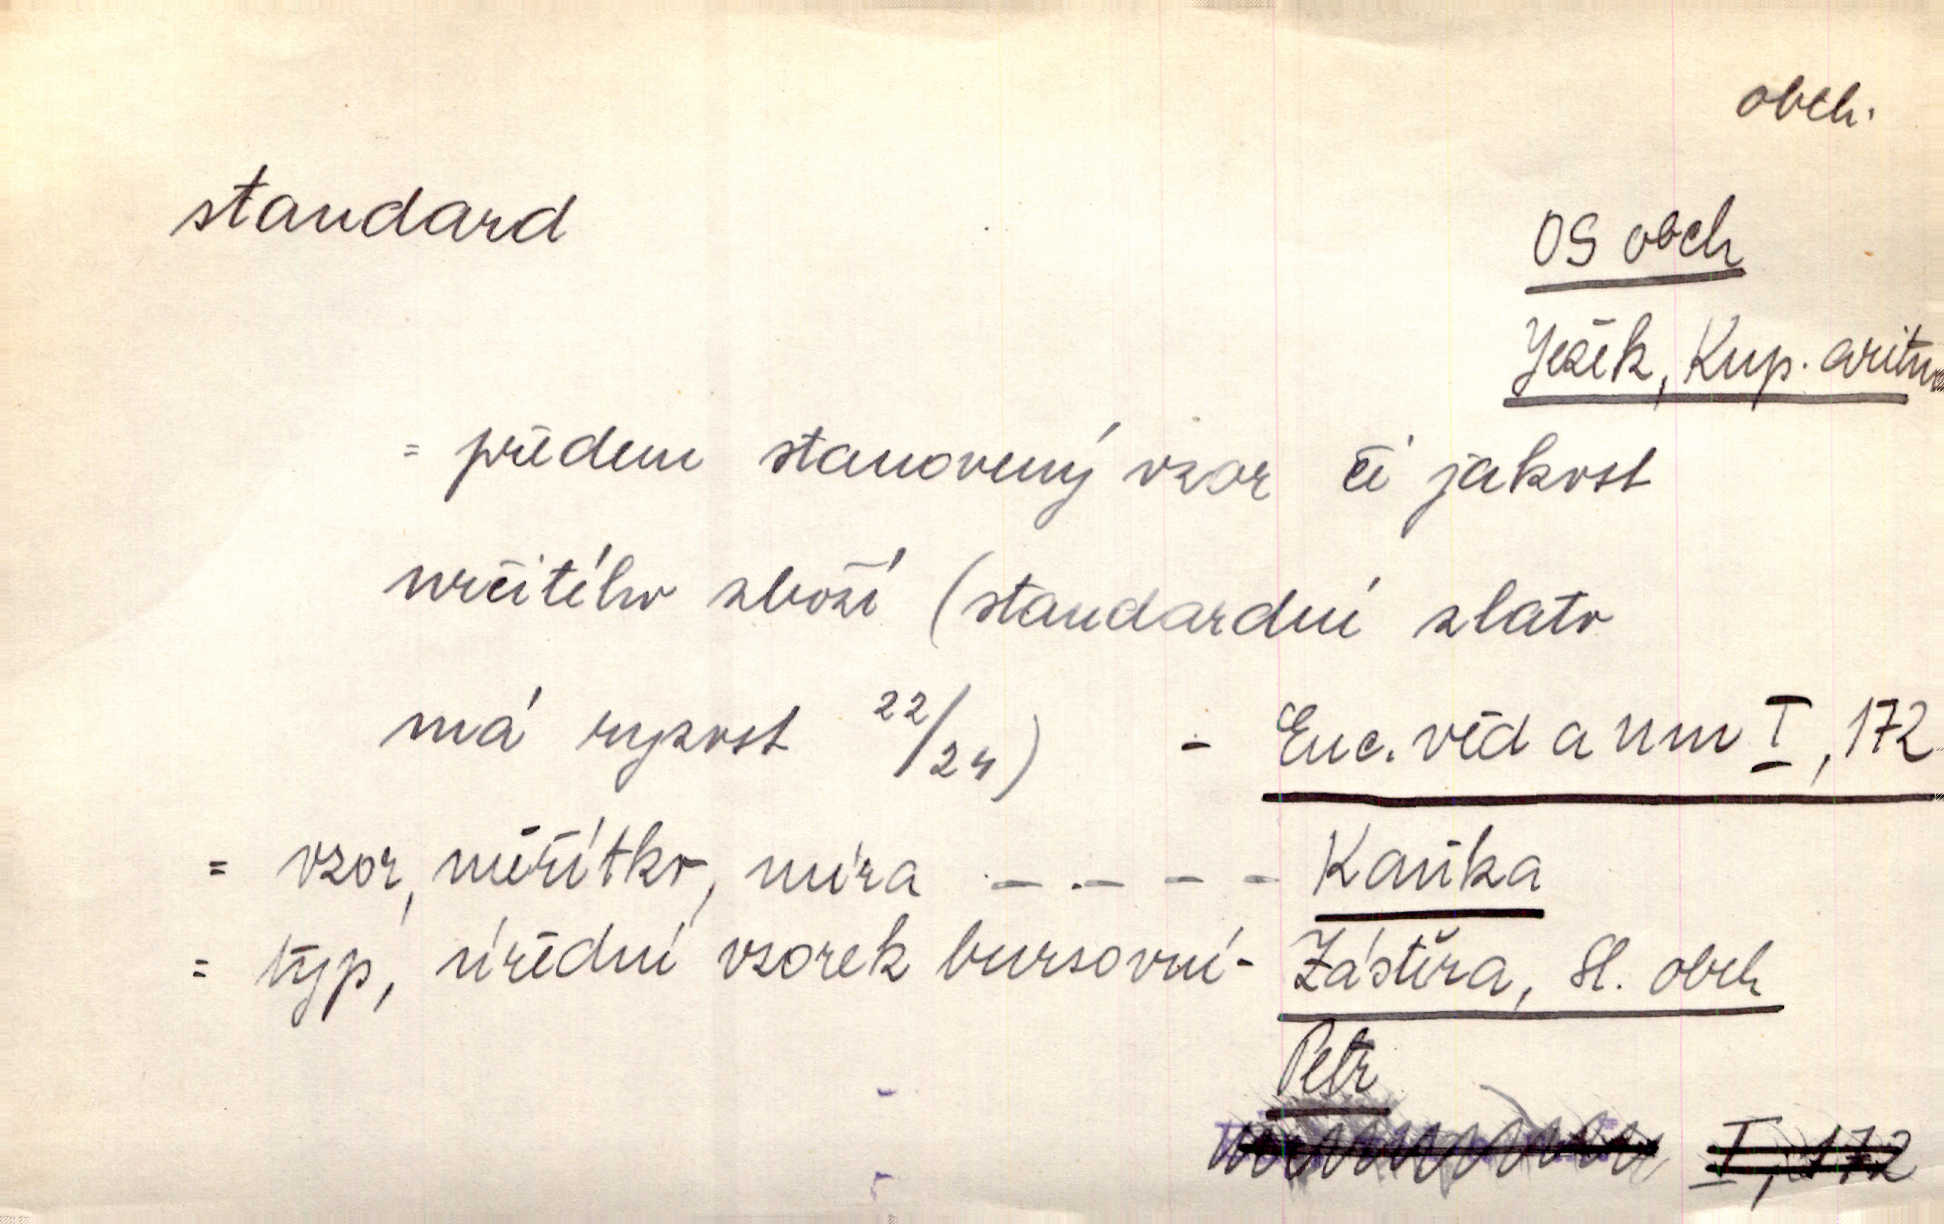 obch.
standard
OS obch
Ježek, Kup. aritm
= předem stanovený vzor či jakost
určitého zboží (standardní zlato
má ryzost 22/24) - Enc. věd a um I, 172
= vzor, měřítko, míra - - - - Kaňka
= typ, úřední vzorek bursovní - Zástěra, Sl. obch
Petr
I, 172